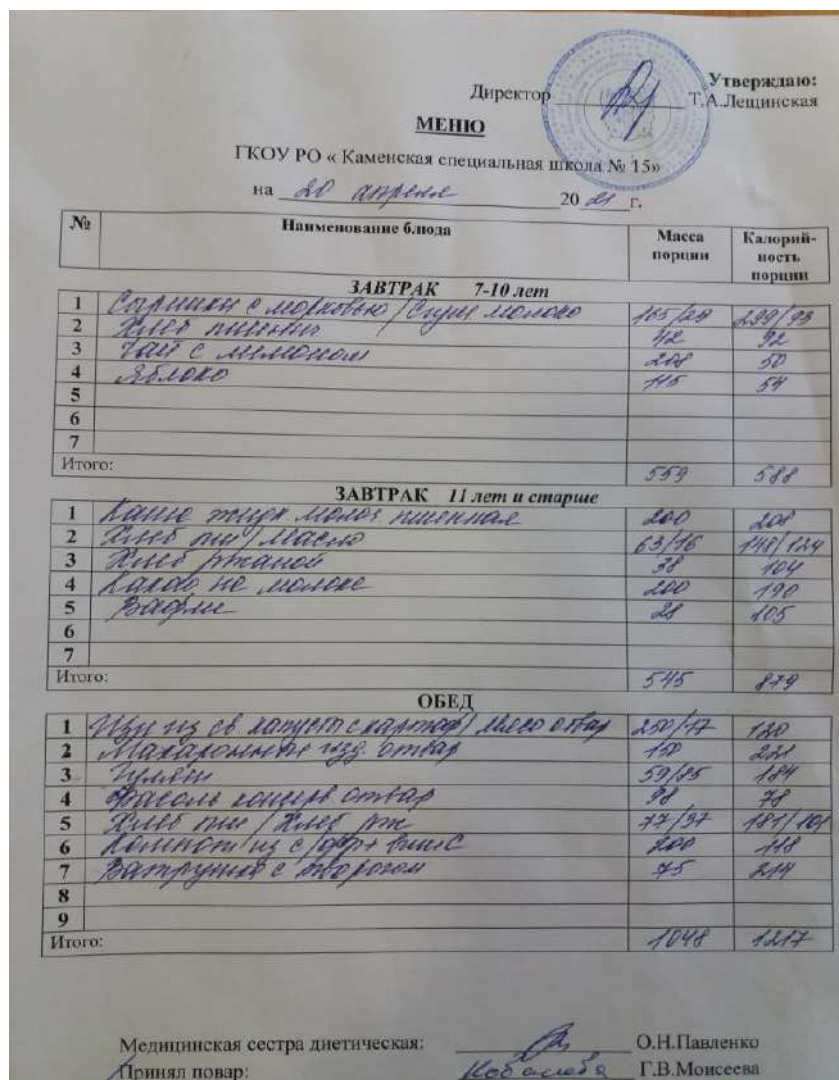 Утверждаю:
Директор Т.А.Лещинская
МЕНЮ
ГКОУ РО « Каменская специальная школа № 15»
на 20 апреля 20 21 г.
№ Наименование блюда Масса порции Калорий-ность порции
ЗАВТРАК 7-10 лет
1 Сырники с морковью / Сгущ молоко 165/29 299/93
2 Хлеб пшенич 42 92
3 Чай с лимоном 208 50
4 Яблоко 115 54
5
6
7
Итого: 559 588
ЗАВТРАК 11 лет и старше
1 Каша жидк. молоч. пшенная 200 208
2 Хлеб пш / Масло 63/16 148/124
3 Хлеб ржаной 38 104
4 Какао на молоке 200 190
5 Вафли 28 105
6
7
Итого: 545 879
ОБЕД
1 Щи из св капусты с картоф / мясо отвар 250/17 120
2 Макаронные изд. отвар 150 221
3 Гуляш 59/85 184
4 Фасоль консерв отвар 98 78
5 Хлеб пш / Хлеб рж 77/37 181/101
6 Компот из с/фр + вит С 200 118
7 Ватрушка с творогом 75 214
8
9
Итого: 1048 1217
Медицинская сестра диетическая: О.Н.Павленко
Принял повар: Г.В.Моисеева